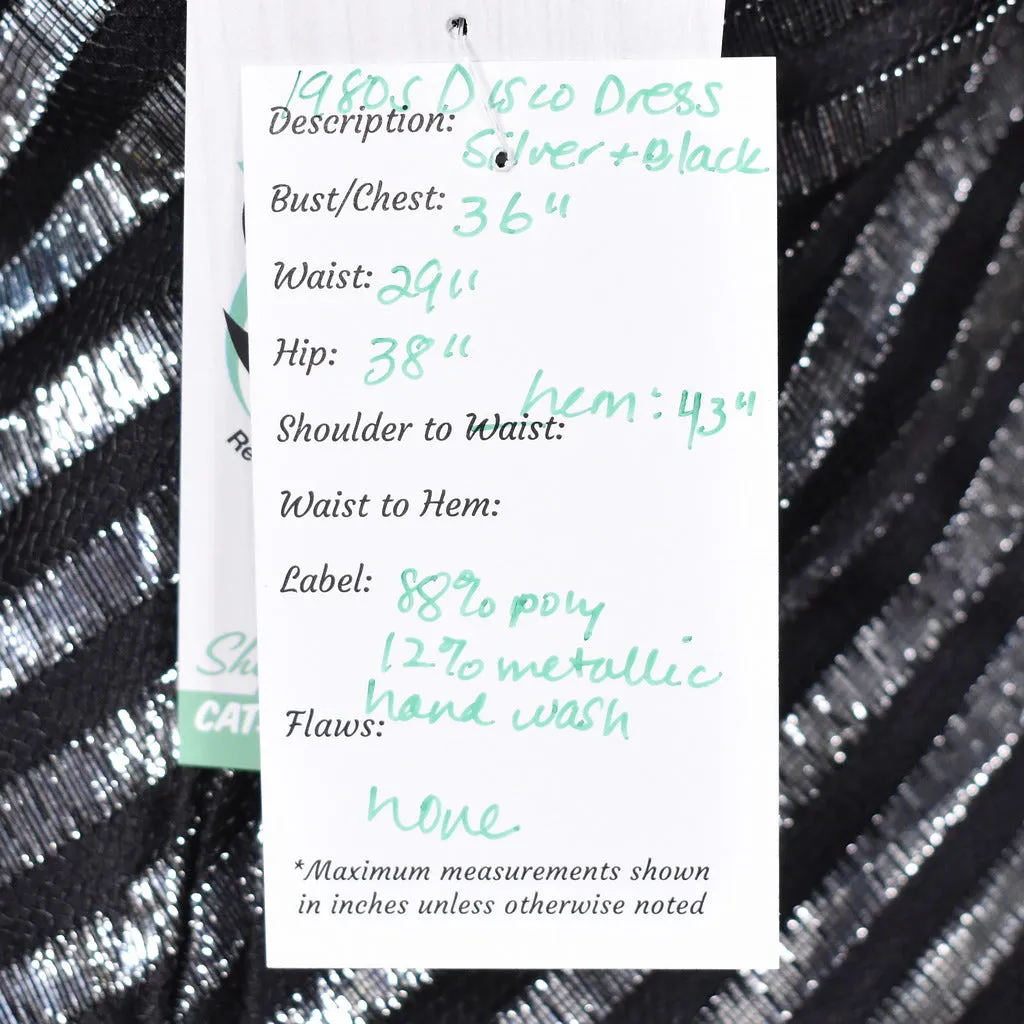 1980s Disco Dress
Description:
Silver + Black
Bust/Chest: 36"
Waist: 29"
Hip: 38"
hem: 43"
Shoulder to Waist:
Waist to Hem:
Label: 88% poly
12% metallic
hand wash
Flaws:
none
*Maximum measurements shown
in inches unless otherwise noted
Re
Sh
CAT